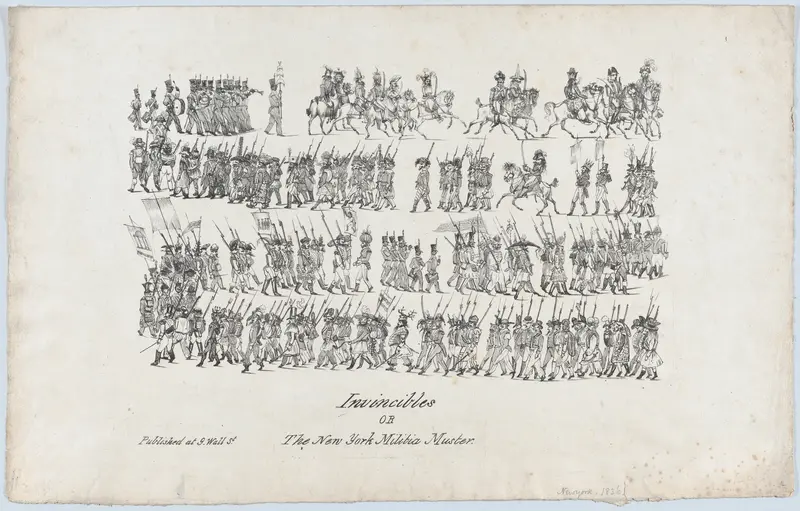 Invincibles
OR
The New York Militia Muster.
Published at 9. Wall St
Newyork. 182